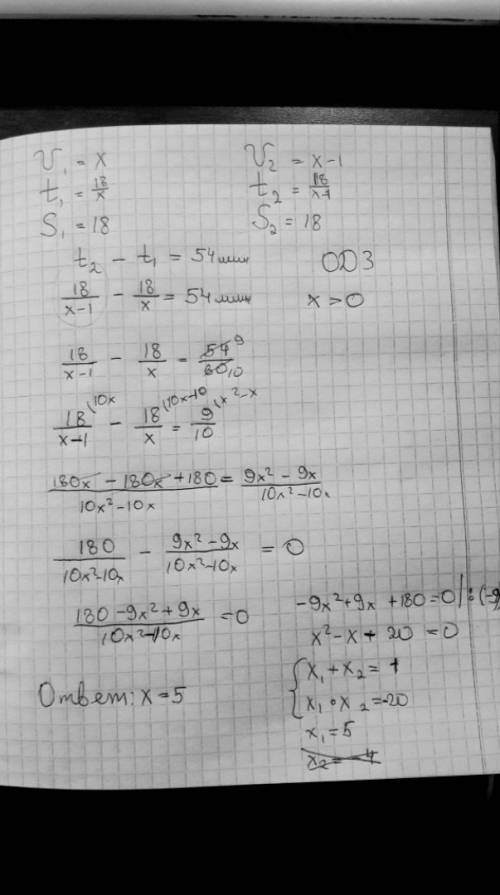 V₁ = x
t₁ = 18/x
S₁ = 18
V₂ = x-1
t₂ = 18/x-1
S₂ = 18
t₂ - t₁ = 54 мин
ОДЗ
18/x-1 - 18/x = 54 мин
x > 0
18/x-1 - 18/x = 54 9/60 10
18\10x/x-1 - 18\10x-10/x = 9\x²-x/10
180x - 180x + 180/10x²-10x = 9x² - 9x/10x²-10x
180/10x²-10x - 9x²-9x/10x²-10x = 0
180-9x²+9x/10x²-10x = 0
-9x²+9x+180=0|:(-9
x²-x+20=0
{x₁+x₂=1
x₁∘x₂=-20
x₁=5
x₂=-4
Ответ: x=5